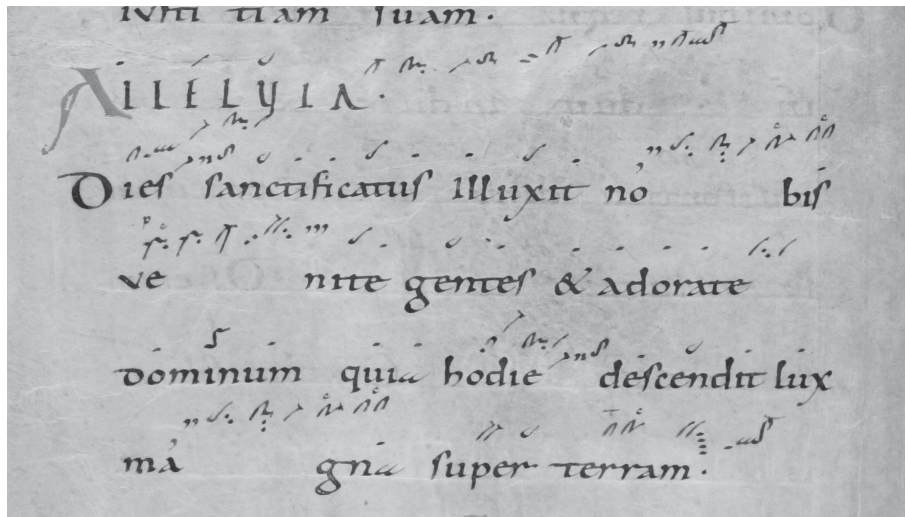 iusti tiam suam.
AllELyIA.
Dies sanctificatus illuxit no bis
ve nite gentes & adorate
dominum quia hodie descendit lux
ma gna super terram.